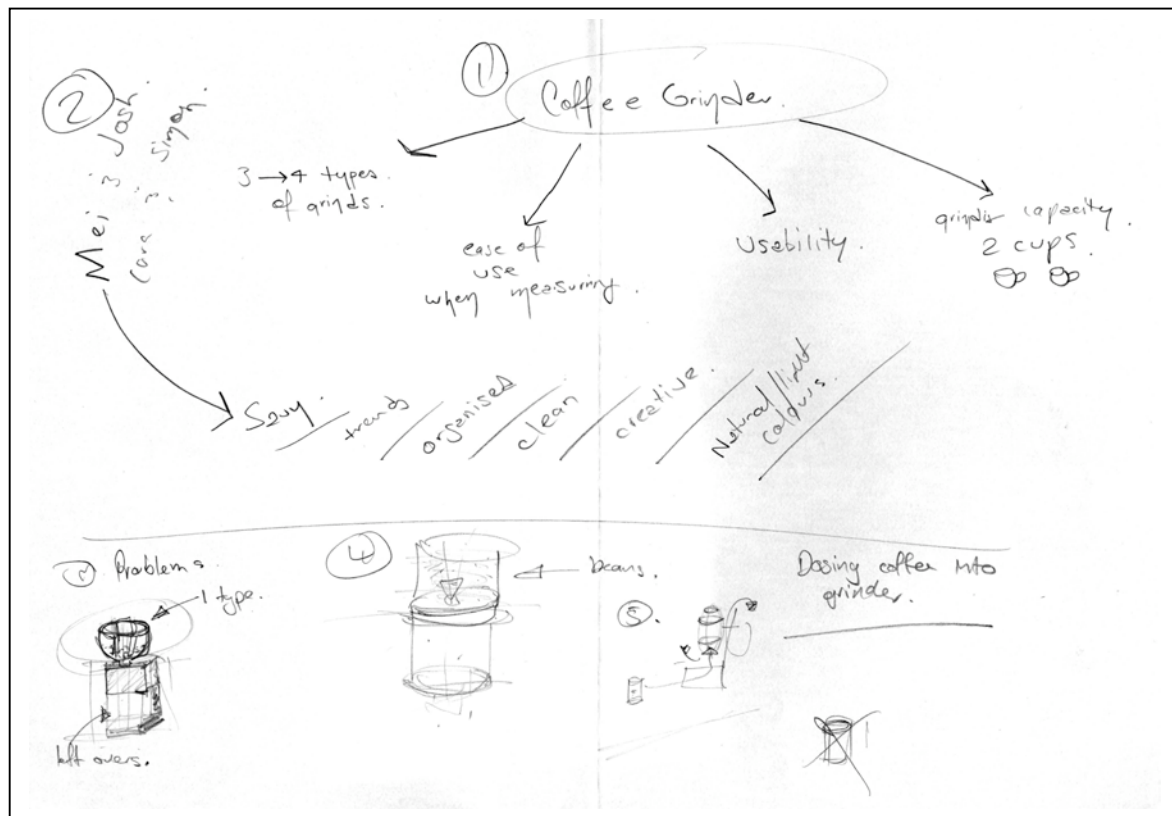 1
Coffee Grinder.
2
Mei ; Josh.
Cara ; Simon.
3 → 4 types
of grinds.
ease of
use
when measuring.
Usability.
grinds capacity
2 cups.
Savy.
trends
organised
clean
creative.
Natural/light
colours.
3 Problems
1 type.
left overs.
4
beans.
5.
Dosing coffee into
grinder.